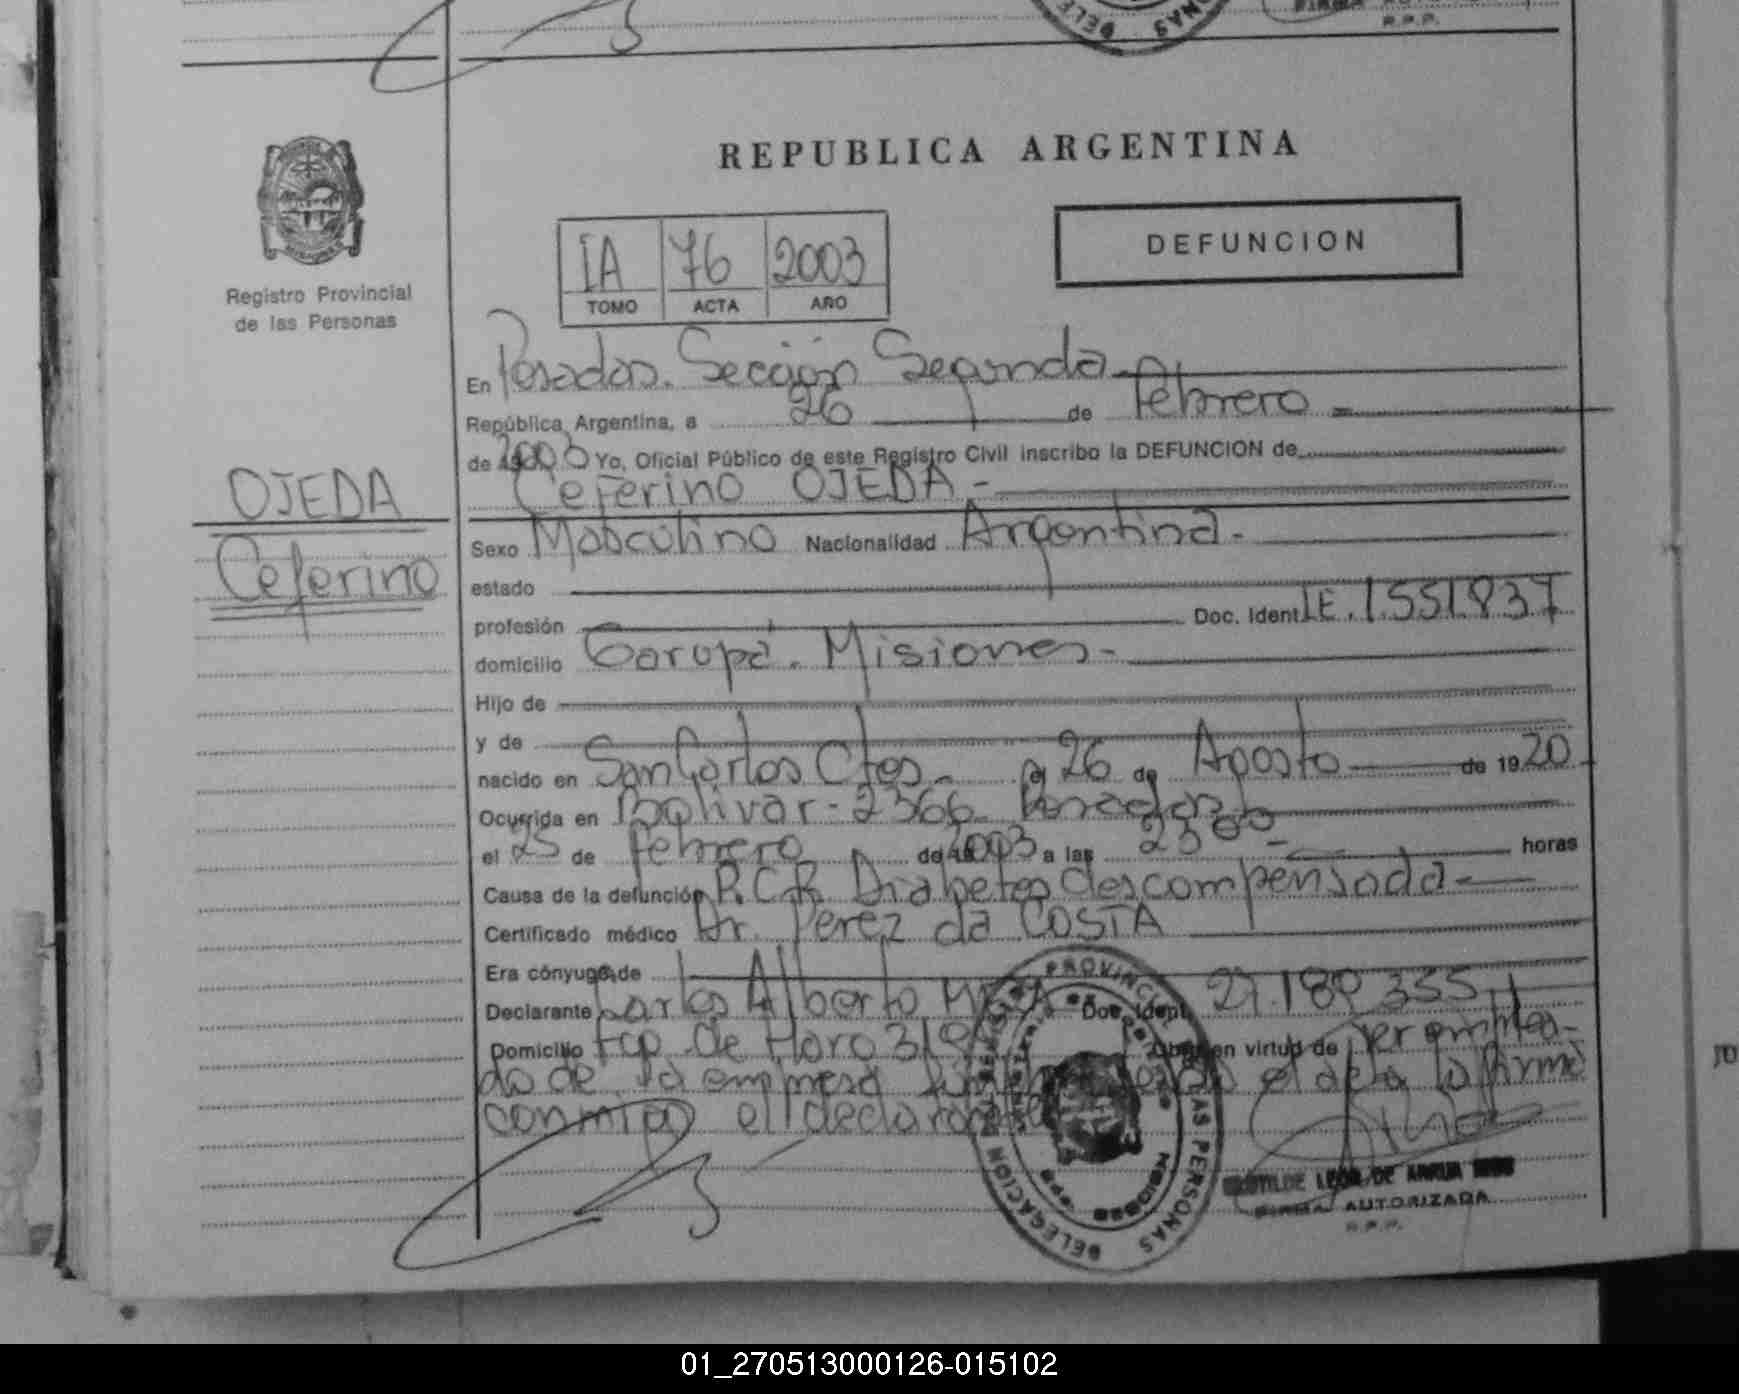 R.P.P.
REPUBLICA ARGENTINA
DEFUNCION
IA 76 2003
TOMO ACTA AÑO
Registro Provincial
de las Personas
En Posadas. Sección Segunda
República Argentina, a 26 de febrero
de 2003 Yo, Oficial Público de este Registro Civil inscribo la DEFUNCION de
OJEDA
Ceferino OJEDA -
Sexo Masculino Nacionalidad Argentina -
Ceferino
estado
profesión Doc. Ident L.E. 1.551.837
domicilio Garupá. Misiones -
Hijo de
y de
nacido en San Carlos Ctes. el 26 de Agosto de 1920
Ocurrida en Bolivar - 2366 Posadas
el 25 de febrero de 2003 a las 23 00 - horas
Causa de la defunción P.C.R. Diabetes descompensada
Certificado médico Dr. Perez da COSTA
Era cónyuge de
Declarante Carlos Alberto Doc. Ident. 27.189.355
Domicilio Fcp. de Haro Obra en virtud de ser emplea-
do de la empresa el acta la firma
conmigo el declarante
REGISTRO PROVINCIAL DE LAS PERSONAS DELEGACION
FIRMA AUTORIZADA
R.P.P.
01_270513000126-015102